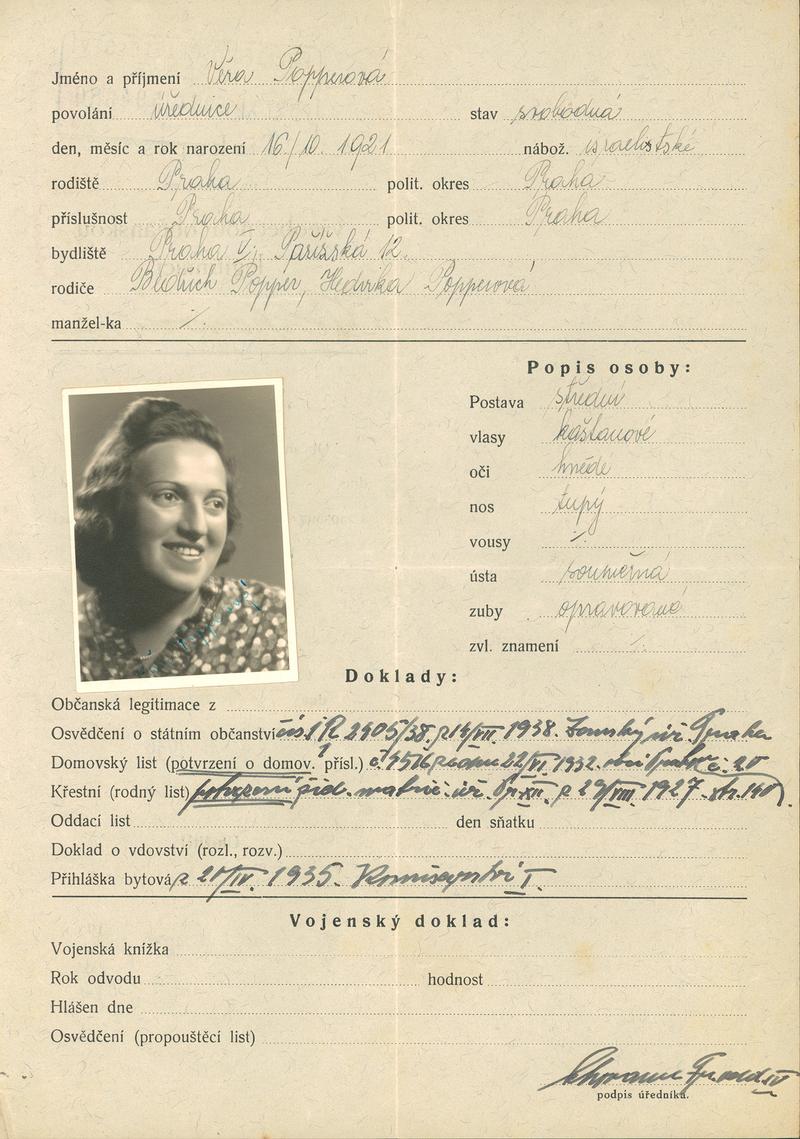 Jméno a příjmení Věra Popperová
povolání úřednice stav svobodná
den, měsíc a rok narození 16/10. 1921 nábož. israelitské
rodiště Praha polit. okres Praha
příslušnost Praha polit. okres Praha
bydliště Praha V., Pařížská 12.
rodiče Bedřich Popper, Hedvika Popperová
manžel-ka ./.
Popis osoby:
Postava střední
vlasy kaštanové
oči hnědé
nos tupý
vousy ./.
ústa souměrná
zuby opravované
zvl. znamení ./.
Doklady:
Občanská legitimace z
Osvědčení o státním občanství čís. I R 2905/38. z 14/VII. 1938. Zemský úř. Praha
Domovský list (potvrzení o domov. přísl.) 22/VI. 1932.
Křestní (rodný list) potvrzení žid. matric. úř. z 29/VIII. 1927. str. 140).
Oddací list den sňatku
Doklad o vdovství (rozl., rozv.)
Přihláška bytová z IV. 1935. Komisařství I.
Vojenský doklad:
Vojenská knížka
Rok odvodu hodnost
Hlášen dne
Osvědčení (propouštěcí list)
podpis úředníka.